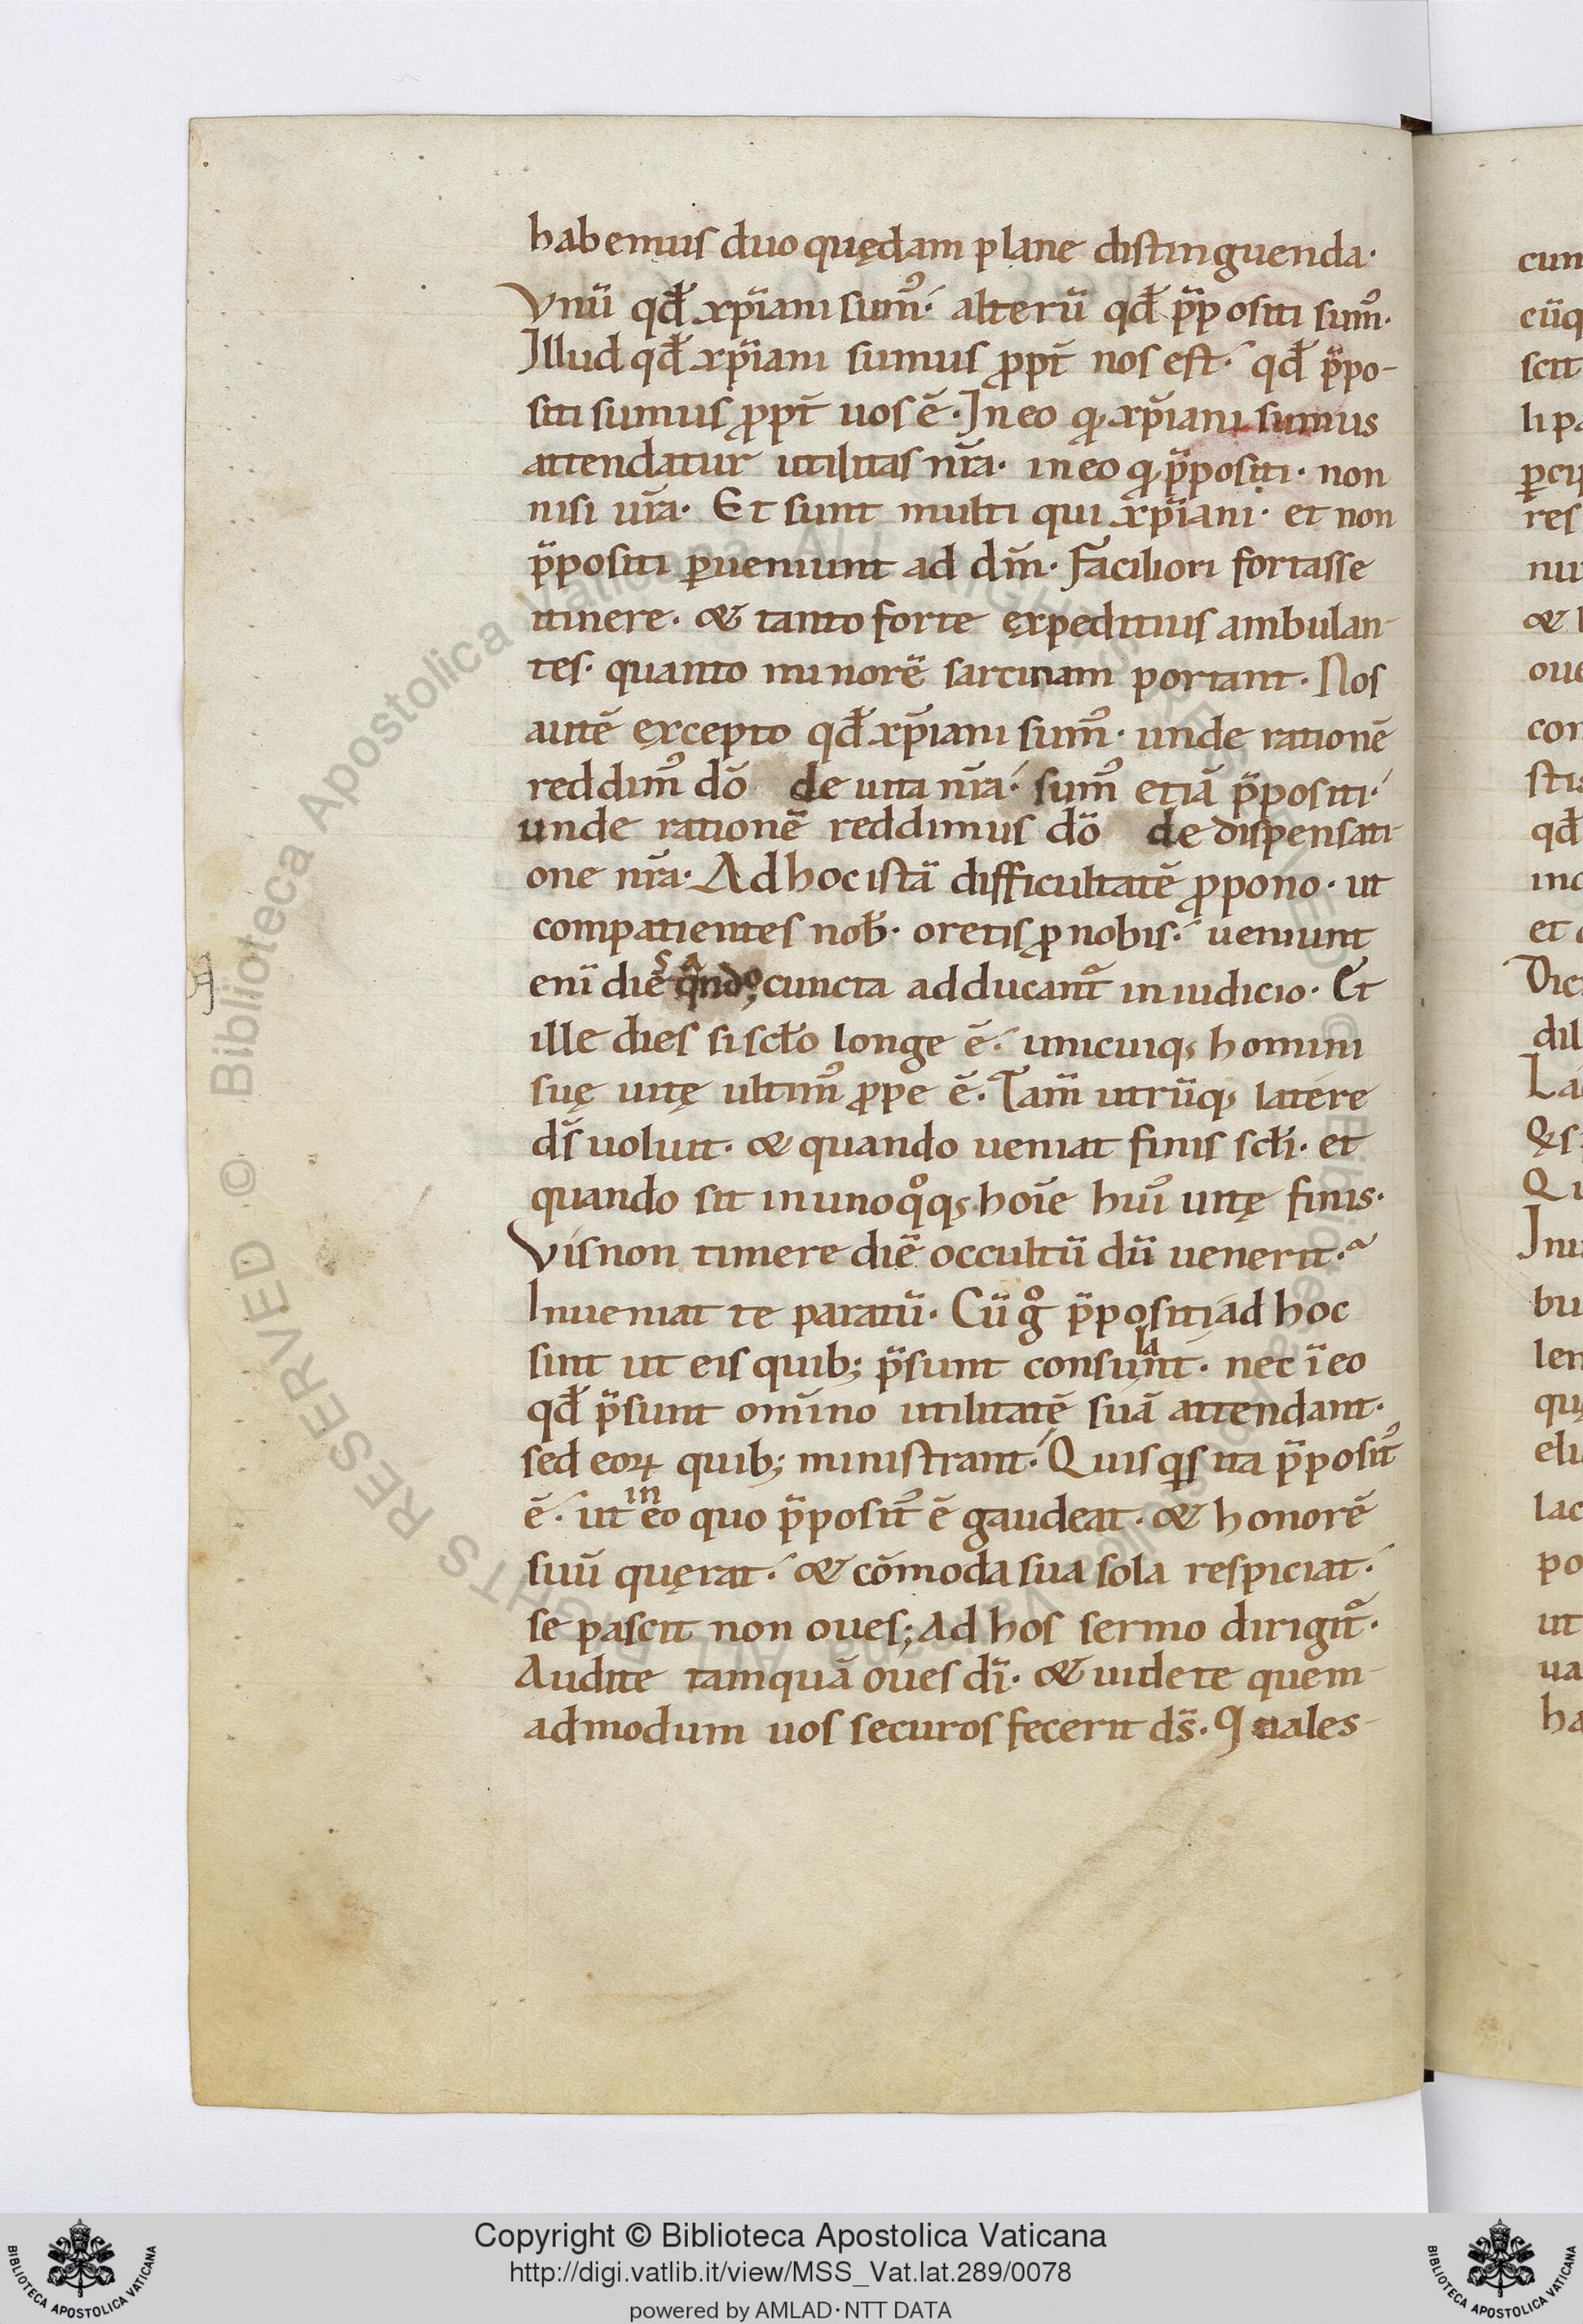 habemus duo quędam plane distinguenda·
Vnū qđ xp̄iani sum᷒· alterū qđ p̄positi sum᷒·
Illud qđ xp̄iani sumus ꝓpt̄ nos est· qđ p̄po-
siti sumus ꝓpt̄ uos ē· In eo qꝫ xp̄iani sumus
attendatur utilitas nr̄a· in eo qꝫ p̄positi· non
nisi ur̄a· Et sunt multi qui xp̄iani· et non
p̄positi ꝑueniunt ad dm̄· Faciliori fortasse
itinere· & tanto forte ęxpeditius ambulan-
tes· quanto minorē sarcinam portant· Nos
autē ęxcepto qđ xp̄iani sum᷒· unde rationē
reddim᷒ dō de uita nr̄a· sum᷒ etiā p̄positi·
unde rationē reddimus dō de dispensati-
one nr̄a· Ad hoc istā difficultatē ꝓpono· ut
compatientes nob̄· oretis ꝓ nobis· ueniunt
enī diēs qn̄do cuncta adducant᷑ in iudicio· Et
ille dies si scło longe ē· unicuiqꝫ homini
suę uitę ultim᷒ ꝓpe ē· Tam̄ utrūqꝫ latere
ds̄ uoluit· & quando ueniat finis scłi· et
quando sit in unoqͦqꝫ hoīe hui᷒ uitę finis·
Vis non timere diē occultū dū uenerit·
Inueniat te paratū· Cū gͦ p̄positi ad hoc
sint ut eis quibꝫ p̄sunt consulant· nec ī eo
qđ p̄sunt om̄ino utilitatē suā attendant·
sed eoꝝ quibꝫ ministrant· Quisqͥs ita p̄posit᷒
ē· ut in eo quo p̄posit᷒ ē gaudeat· & honorē
suū quęrat· & cōmoda sua sola respiciat·
se pascit non oues; Ad hos sermo dirigit᷑·
Audite tamquā oues dī· & uidete quem-
admodum uos securos fecerit ds̄· Quales-
cum
cūq
scit
li pa
ꝑcip
res
nu
&
oue
con
stis
qđ
inc
et
Dic
dil
La
Qu
Inu
bu
len
quę
elu
lac
po
ut
ua
ha
Copyright © Biblioteca Apostolica Vaticana
http://digi.vatlib.it/view/MSS_Vat.lat.289/0078
powered by AMLAD·NTT DATA
BIBLIOTECA APOSTOLICA VATICANA
BIBLIOTECA APOSTOLICA VATICANA